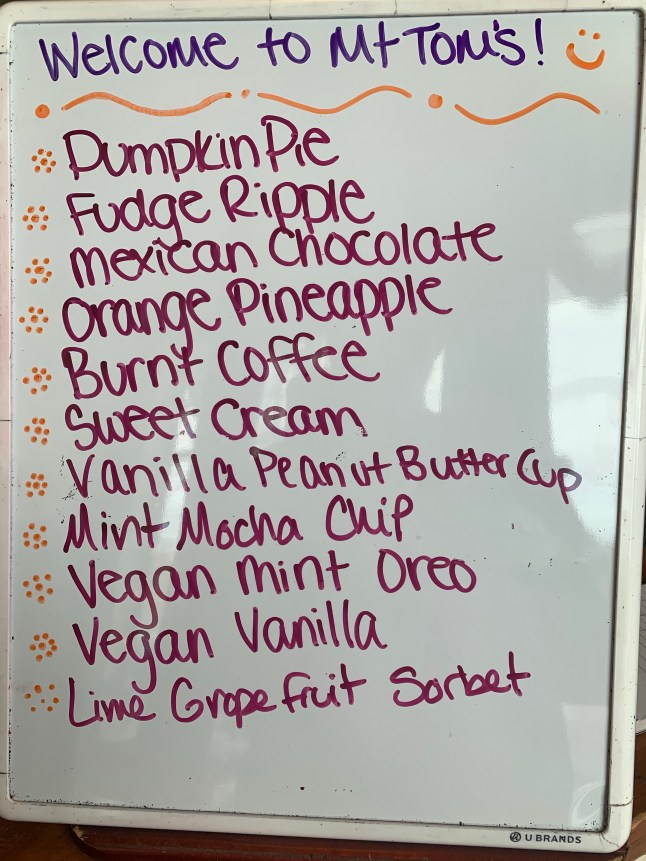 Welcome to Mt Tom's!
Pumpkin Pie
Fudge Ripple
Mexican Chocolate
Orange Pineapple
Burnt Coffee
Sweet Cream
Vanilla Peanut Butter Cup
Mint Mocha Chip
Vegan Mint Oreo
Vegan Vanilla
Lime Grapefruit Sorbet
U BRANDS